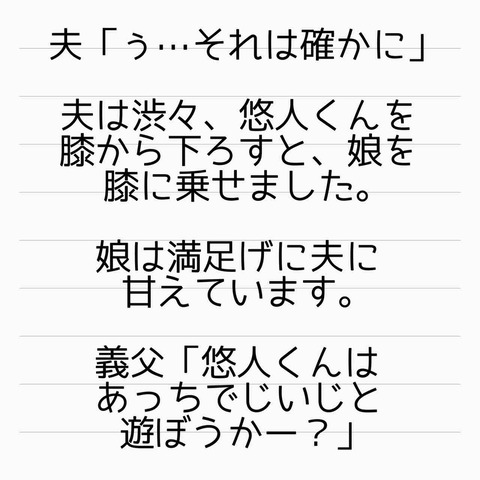 夫「ぅ…それは確かに」
夫は渋々、悠人くんを
膝から下ろすと、娘を
膝に乗せました。
娘は満足げに夫に
甘えています。
義父「悠人くんは
あっちでじいじと
遊ぼうかー？」